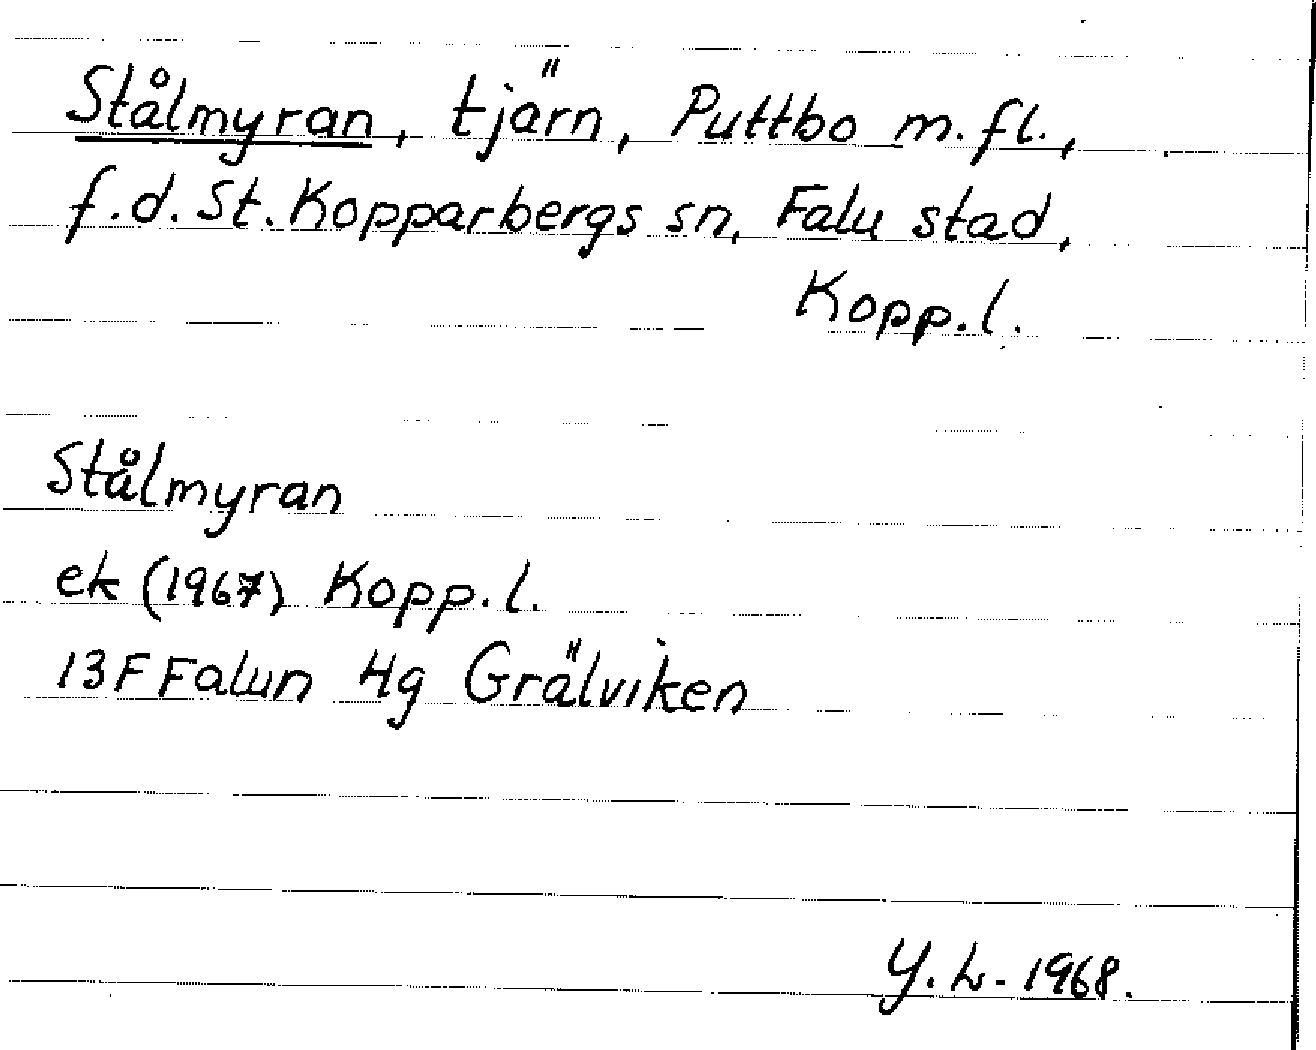 Stålmyran, tjärn, Puttbo m.fl.,
f.d. St. Kopparbergs sn, Falu stad,
Kopp.l.
Stålmyran
ek (1967) Kopp.l.
13F Falun 4g Grälviken
Y.L. 1968.